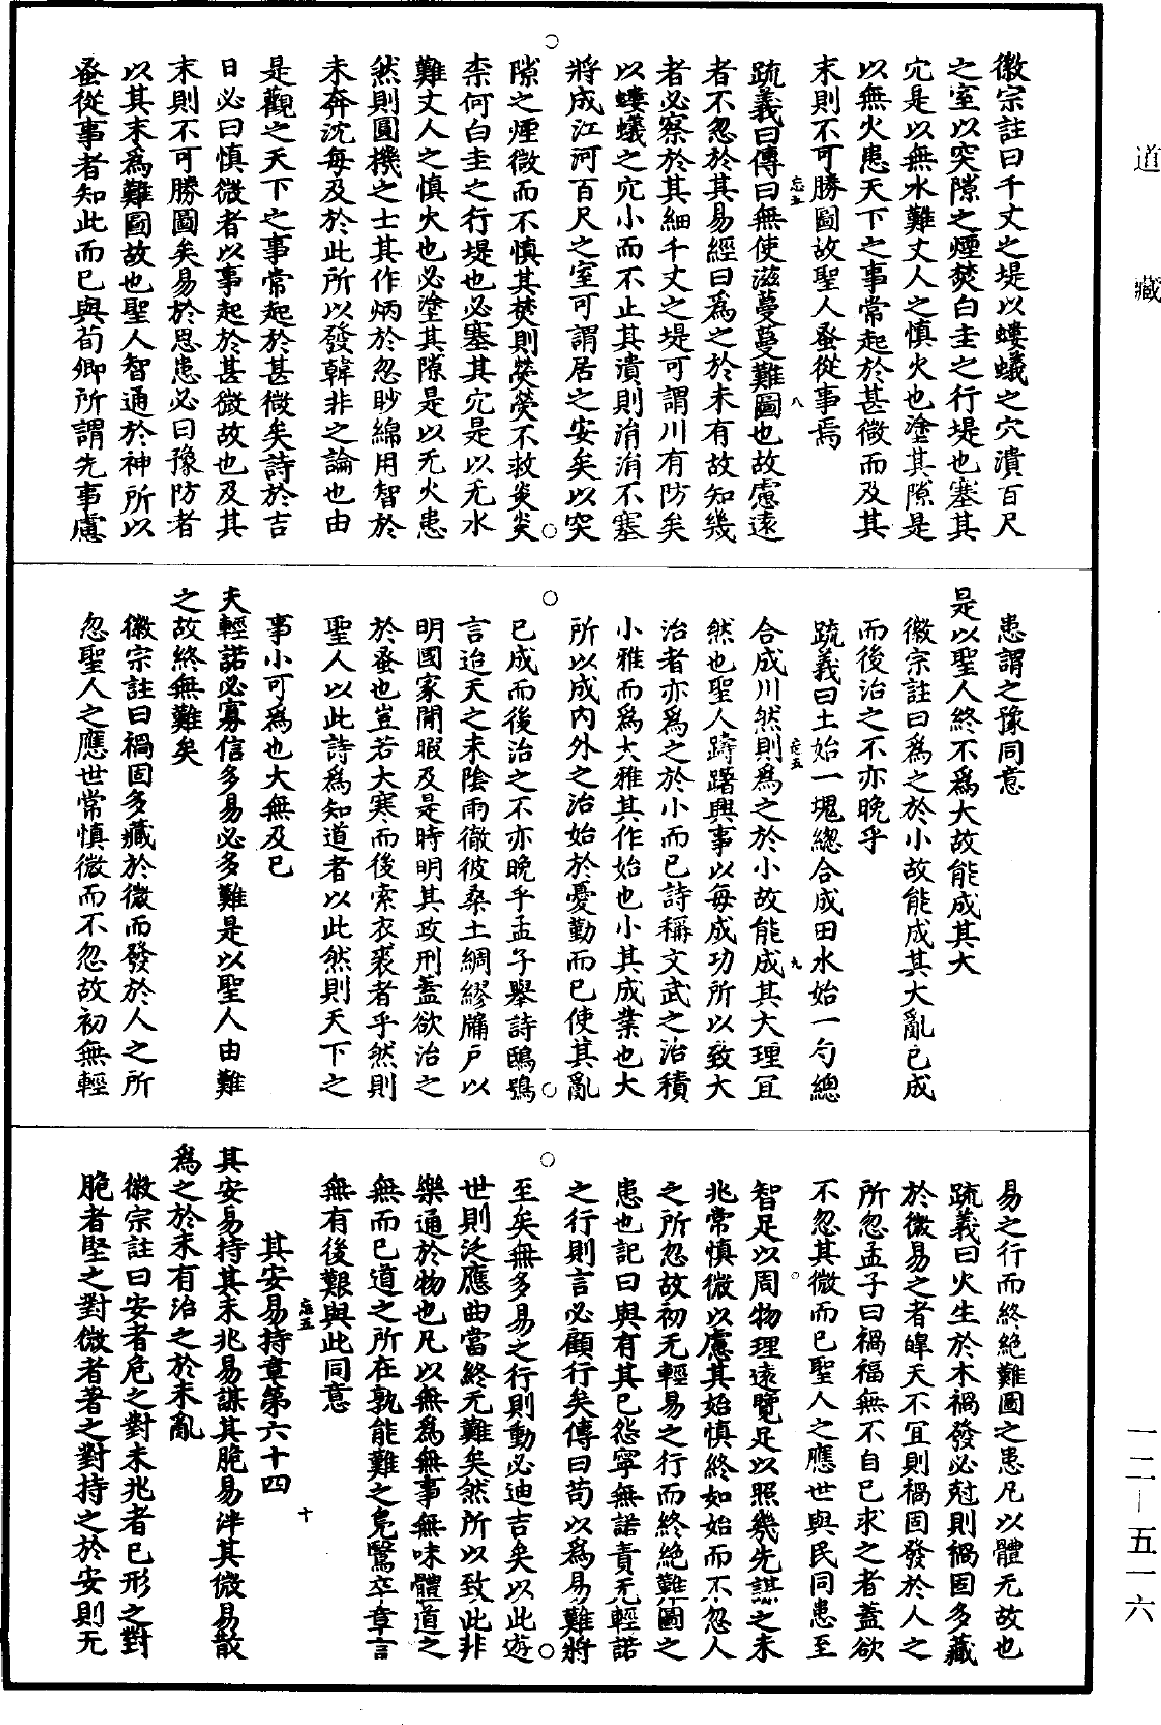 道藏
徽宗註曰千丈之堤以螻蟻之穴潰百尺
之室以突隙之煙焚白圭之行堤也塞其
穴是以無水難丈人之慎火也塗其隙是
以無火患天下之事常起於甚微而及其
末則不可勝圖故聖人蚤從事焉
忘五
八
疏義曰傳曰無使滋蔓蔓難圖也故慮遠
者不忽於其易經曰爲之於未有故知幾
者必察於其細千丈之堤可謂川有防矣
以螻蟻之穴小而不止其潰則涓涓不塞
將成江河百尺之室可謂居之安矣以突
隙之煙微而不慎其焚則熒熒不救炎炎
柰何白圭之行堤也必塞其穴是以无水
難丈人之慎火也必塗其隙是以无火患
然則圓機之士其作炳於忽眇綿用智於
未奔沈每及於此所以發韓非之論也由
是觀之天下之事常起於甚微矣詩於吉
日必曰慎微者以事起於甚微故也及其
末則不可勝圖矣易於思患必曰豫防者
以其末爲難圖故也聖人智通於神所以
蚤從事者知此而已與荀卿所謂先事慮
患謂之豫同意
是以聖人終不爲大故能成其大
徽宗註曰爲之於小故能成其大亂已成
而後治之不亦晚乎
疏義曰土始一塊總合成田水始一勺總
忘五
九
合成川然則爲之於小故能成其大理冝
然也聖人躊躇興事以每成功所以致大
治者亦爲之於小而已詩稱文武之治積
小雅而爲大雅其作始也小其成業也大
所以成內外之治始於憂勤而已使其亂
已成而後治之不亦晚乎孟子舉詩鴟鴞
言迨天之未陰雨徹彼桑土綢繆牖戶以
明國家閒暇及是時明其政刑蓋欲治之
於蚤也豈若大寒而後索衣裘者乎然則
聖人以此詩爲知道者以此然則天下之
事小可爲也大無及已
夫輕諾必寡信多易必多難是以聖人由難
之故終無難矣
徽宗註曰禍固多藏於微而發於人之所
忽聖人之應世常慎微而不忽故初無輕
易之行而終絕難圖之患凡以體无故也
疏義曰火生於木禍發必尅則禍固多藏
於微易之者皞天不冝則禍固發於人之
所忽孟子曰禍福無不自己求之者蓋欲
不忽其微而已聖人之應世與民同患至
智足以周物理遠覽足以照幾先謀之未
兆常慎微以慮其始慎終如始而不忽人
之所忽故初无輕易之行而終絕難圖之
患也記曰與有其已怨寧無諾責无輕諾
之行則言必顧行矣傳曰苟以爲易難將
至矣無多易之行則動必迪吉矣以此遊
世則泛應曲當終无難矣然所以致此非
樂通於物也凡以無爲無事無味體道之
無而已道之所在孰能難之鳧鷖卒章言
無有後艱與此同意
忘五
十
其安易持章第六十四
其安易持其未兆易謀其脆易泮其微易散
爲之於未有治之於未亂
徽宗註曰安者危之對未兆者已形之對
脆者堅之對微者著之對持之於安則无
一二—五一六